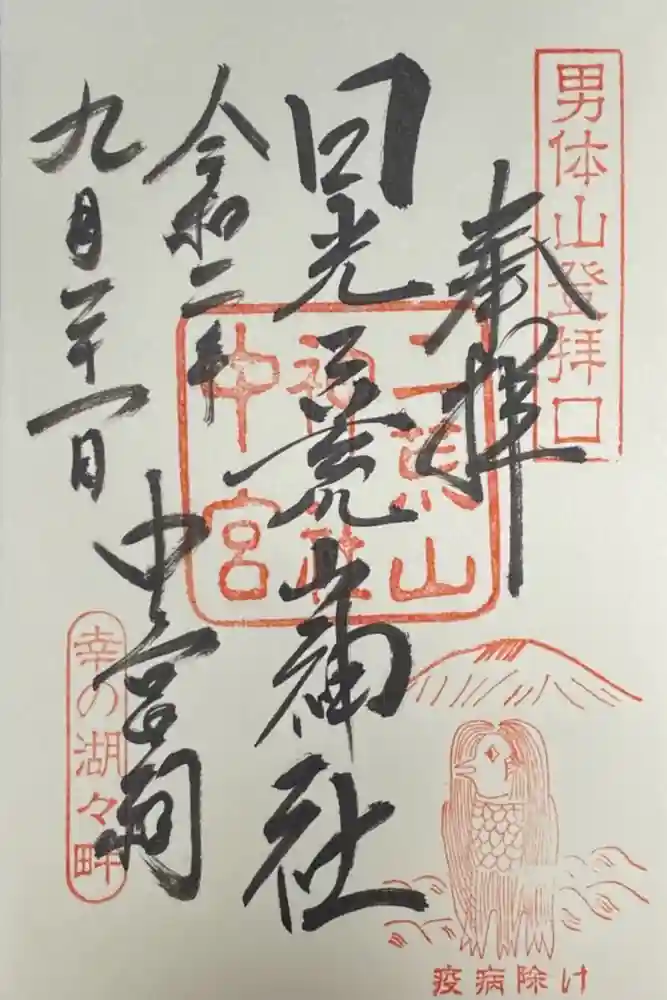 男体山登拝口
奉拝
日光二荒山神社
二荒山
神社
中宮
令和二年
九月二十一日
中宮祠
幸の湖々畔
疫病除け